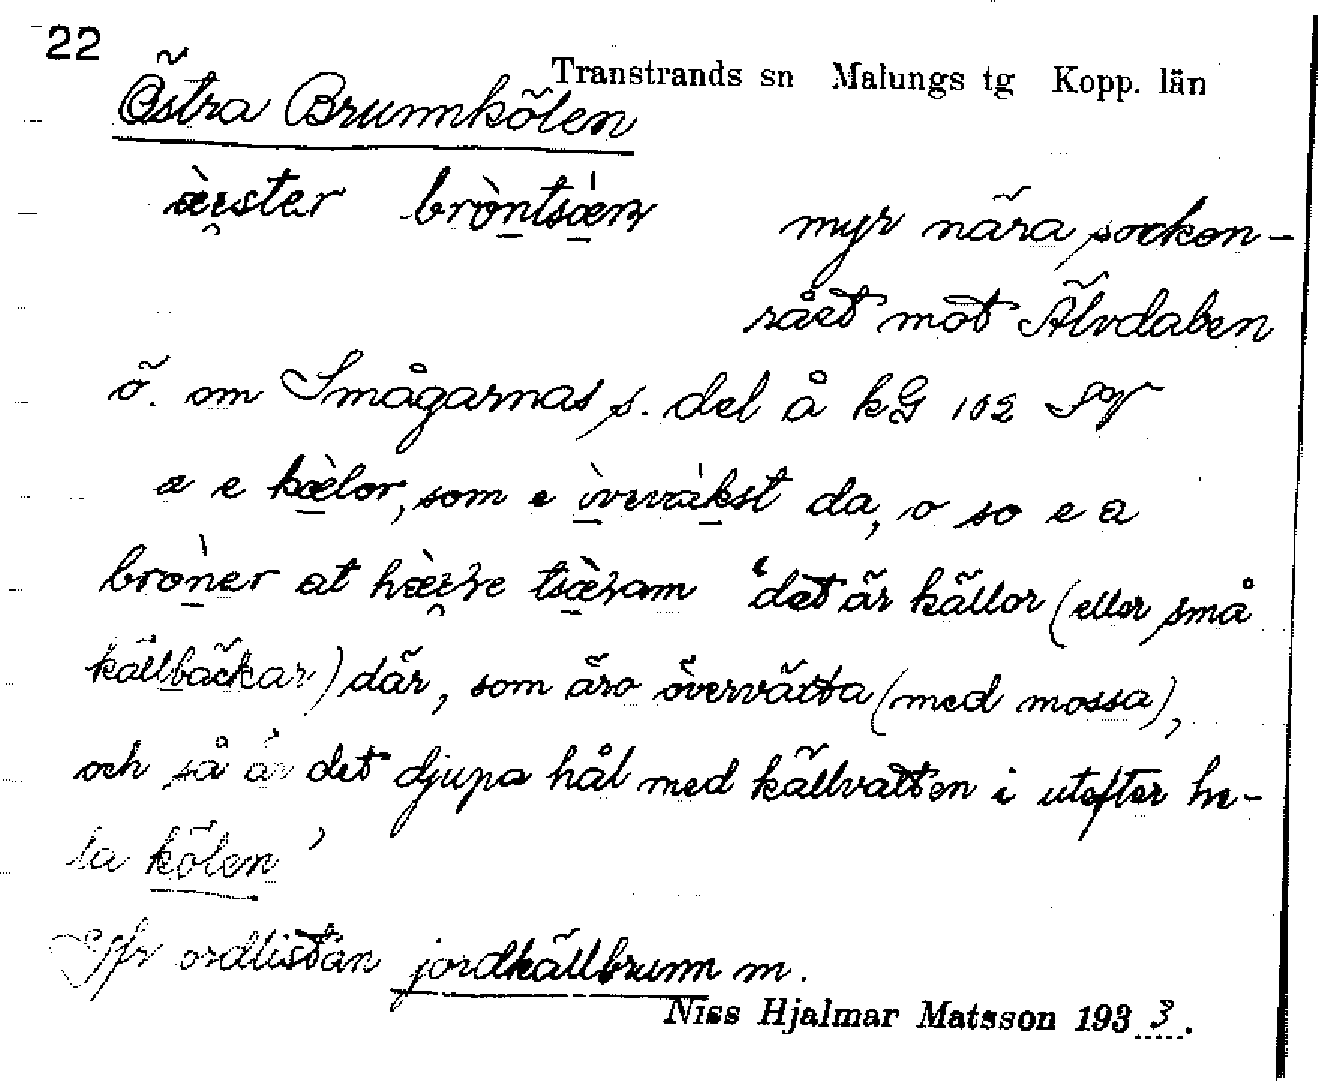 22
Transtrands sn Malungs tg Kopp. län
Östra Brunnkölen
myr nära socken-
rået mot Älvdalen
ö. om Smågarnas s. del å kG 102 SV
a e kælor, som e òverväkst da, o so e a
bròner at hæLe tsæLam 'det är källor (eller små
källbäckar) där, som äro övervätta (med mossa),
och så är det djupa hål med källvatten i utefter he-
la kölen'
Jfr ordlistan jordkällbrunn m.
Niss Hjalmar Matsson 1933.